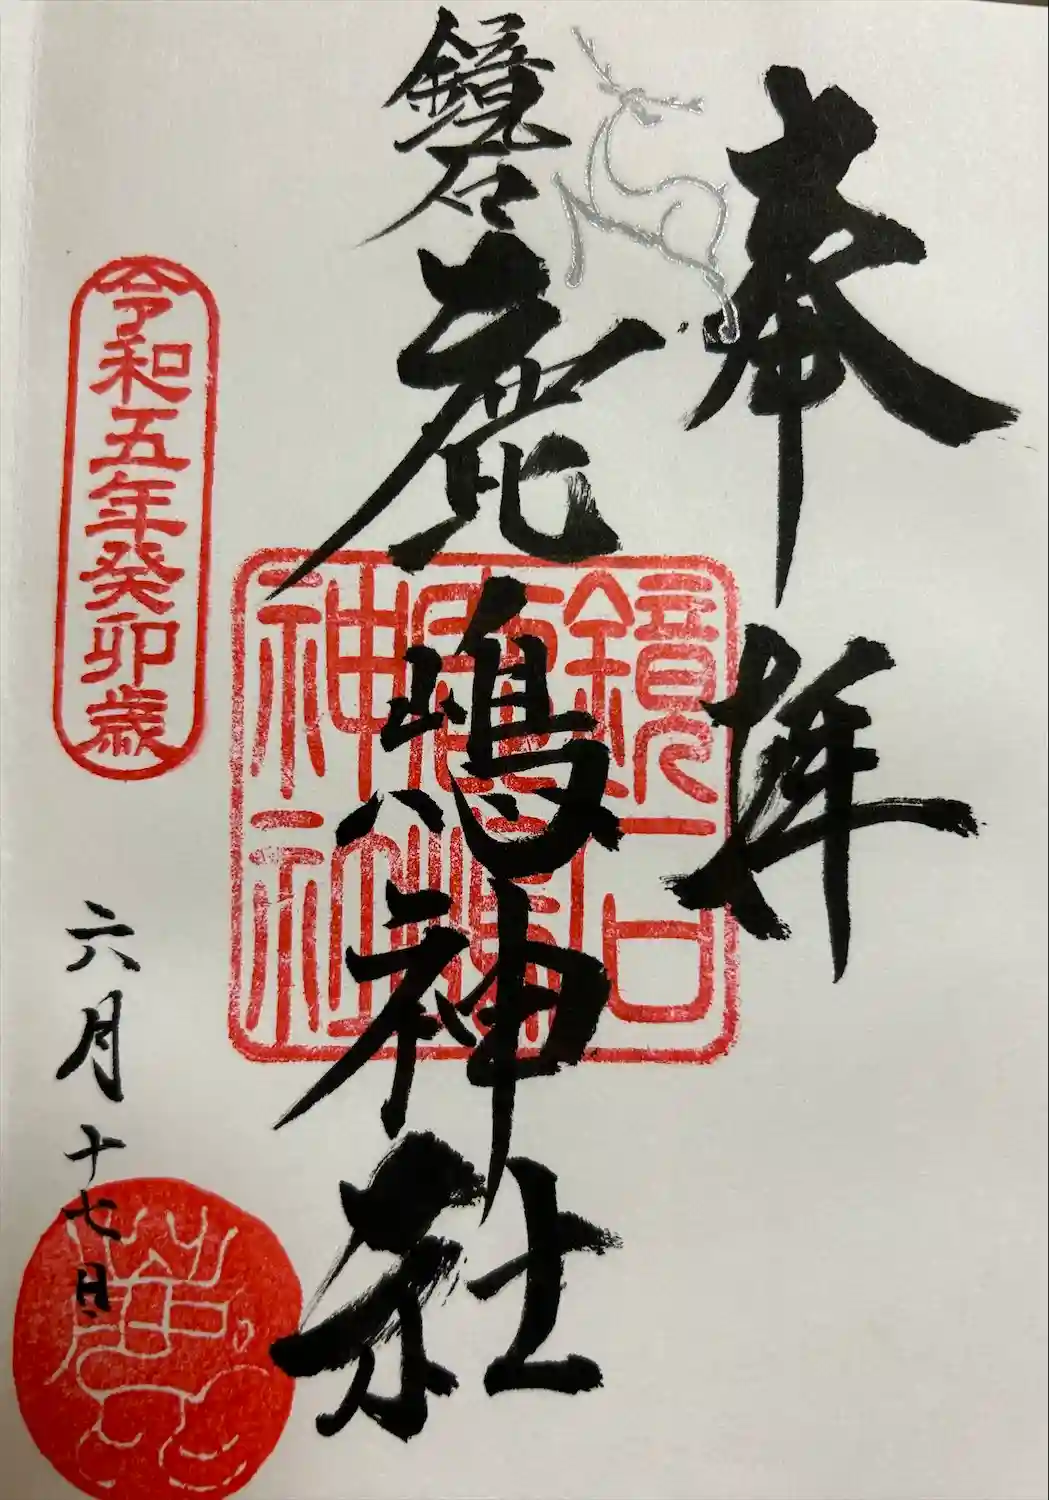 奉拝
鏡石
鹿嶋神社
鏡石
鹿嶋
神社
令和五年癸卯歳
六月十七日